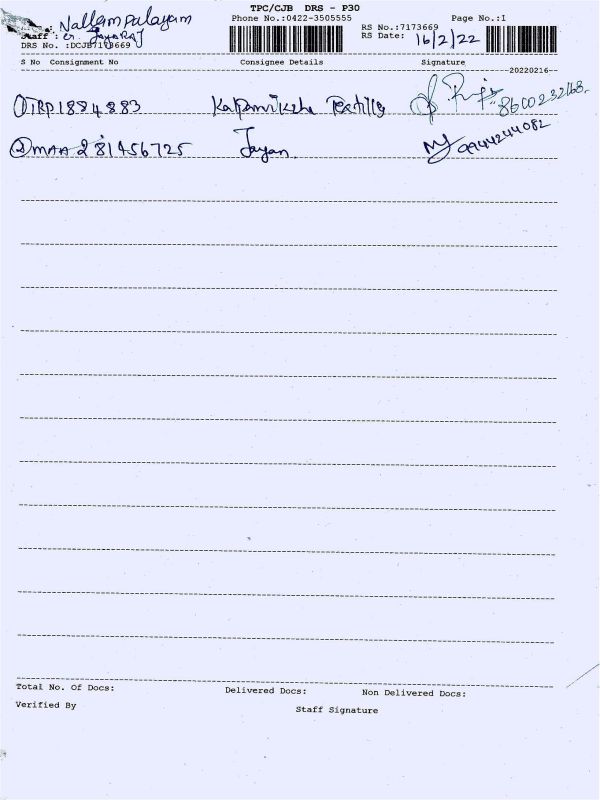 TPC/CJB DRS - P30
Nallampalayam Phone No.:0422-3505555 Page No.:1
RS No.:7173669
Staff : Er. Jayaraj RS Date: 16/2/22
DRS No. :DCJB7173669
S No Consignment No Consignee Details Signature
20220216
① TRP1884883 Textills
② MAA281456725 Jayan. 9944244082
Total No. Of Docs: Delivered Docs: Non Delivered Docs:
Verified By Staff Signature